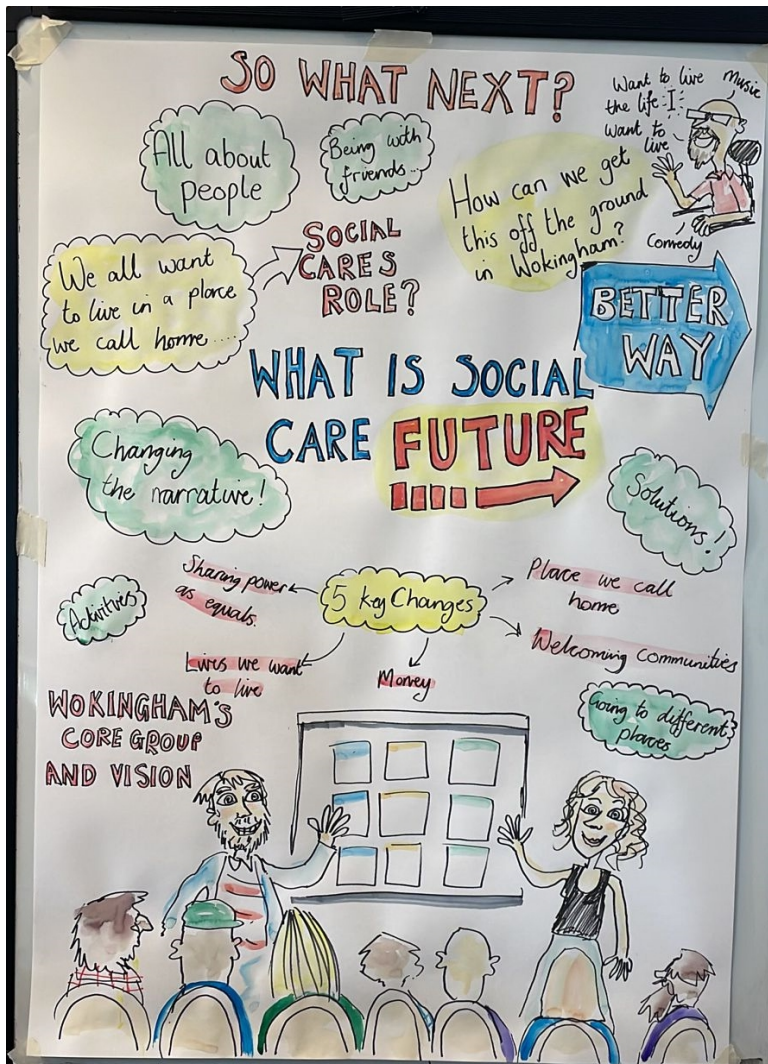 SO WHAT NEXT?
Want to live
the life I
want to
live
Music
Comedy
All about
people
Being with
friends...
How can we get
this off the ground
in Wokingham?
We all want
to live in a place
we call home....
SOCIAL
CARES
ROLE?
BETTER
WAY
WHAT IS SOCIAL
CARE FUTURE
Changing
the narrative!
Solutions!
5 key Changes
Sharing power
as equals.
Place we call
home
Activities
Lives we want
to live
Money
Welcoming Communities
WOKINGHAM'S
CORE GROUP
AND VISION
Going to different
places